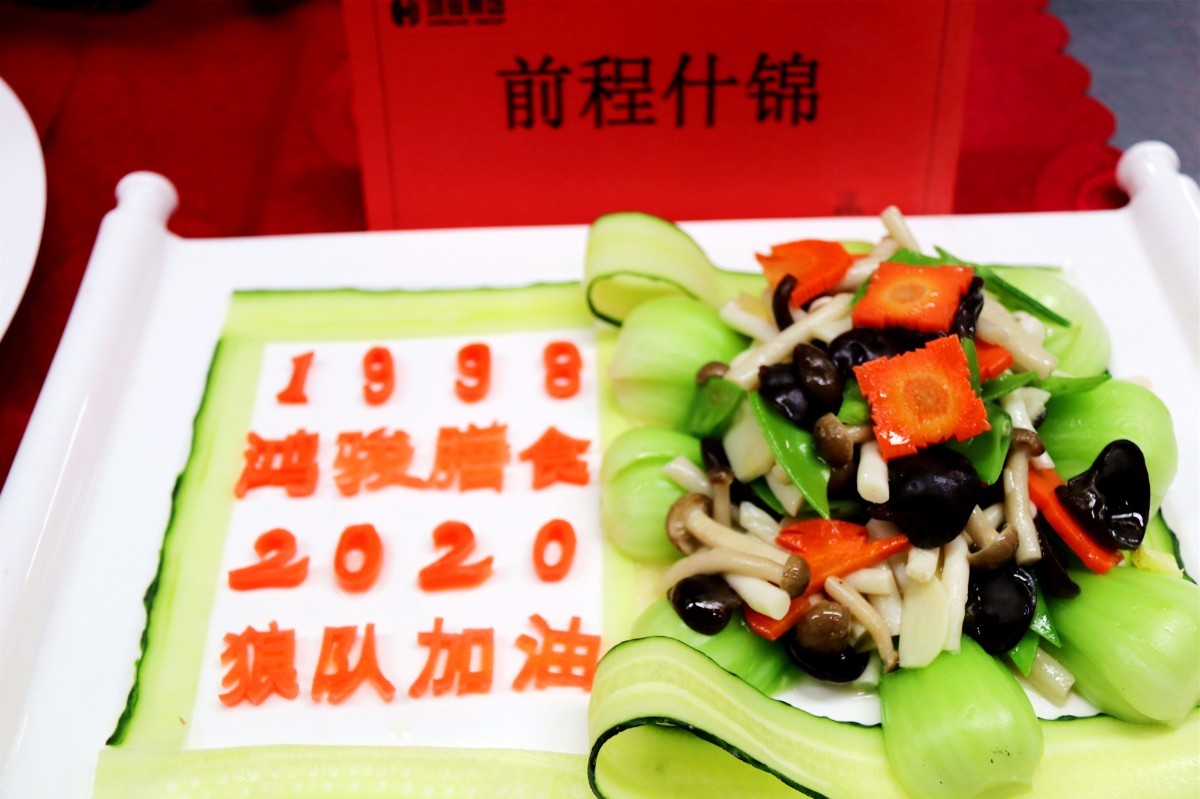 前程什锦
1998
鸿骏膳食
2020
狼队加油